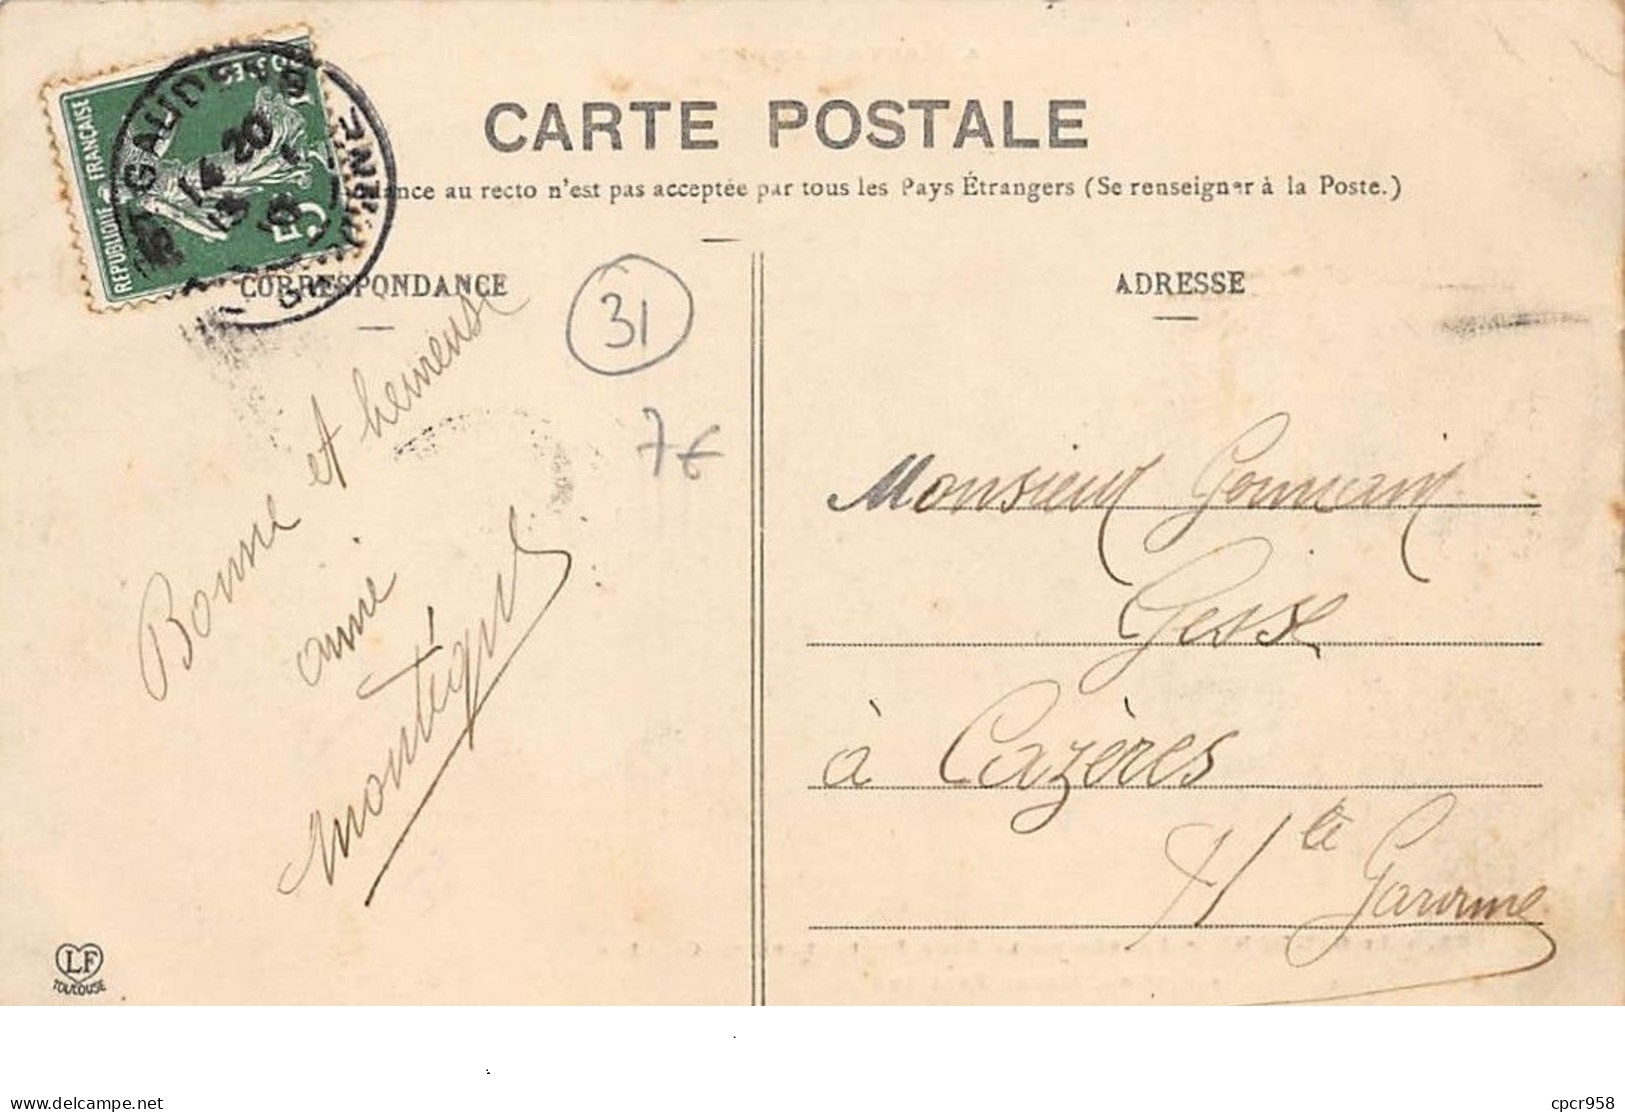 CARTE POSTALE
ance au recto n'est pas acceptée par tous les Pays Étrangers (Se renseigner à la Poste.)
REPUBLIQUE FRANÇAISE
5
GAUDENS
14 20
CORRESPONDANCE
ADRESSE
31
7€
Bonne et heureuse
anné
Monsieur
Gesse
à Cazères
Hte Garonne
LF
TOULOUSE
delcampe.net
cpcr958